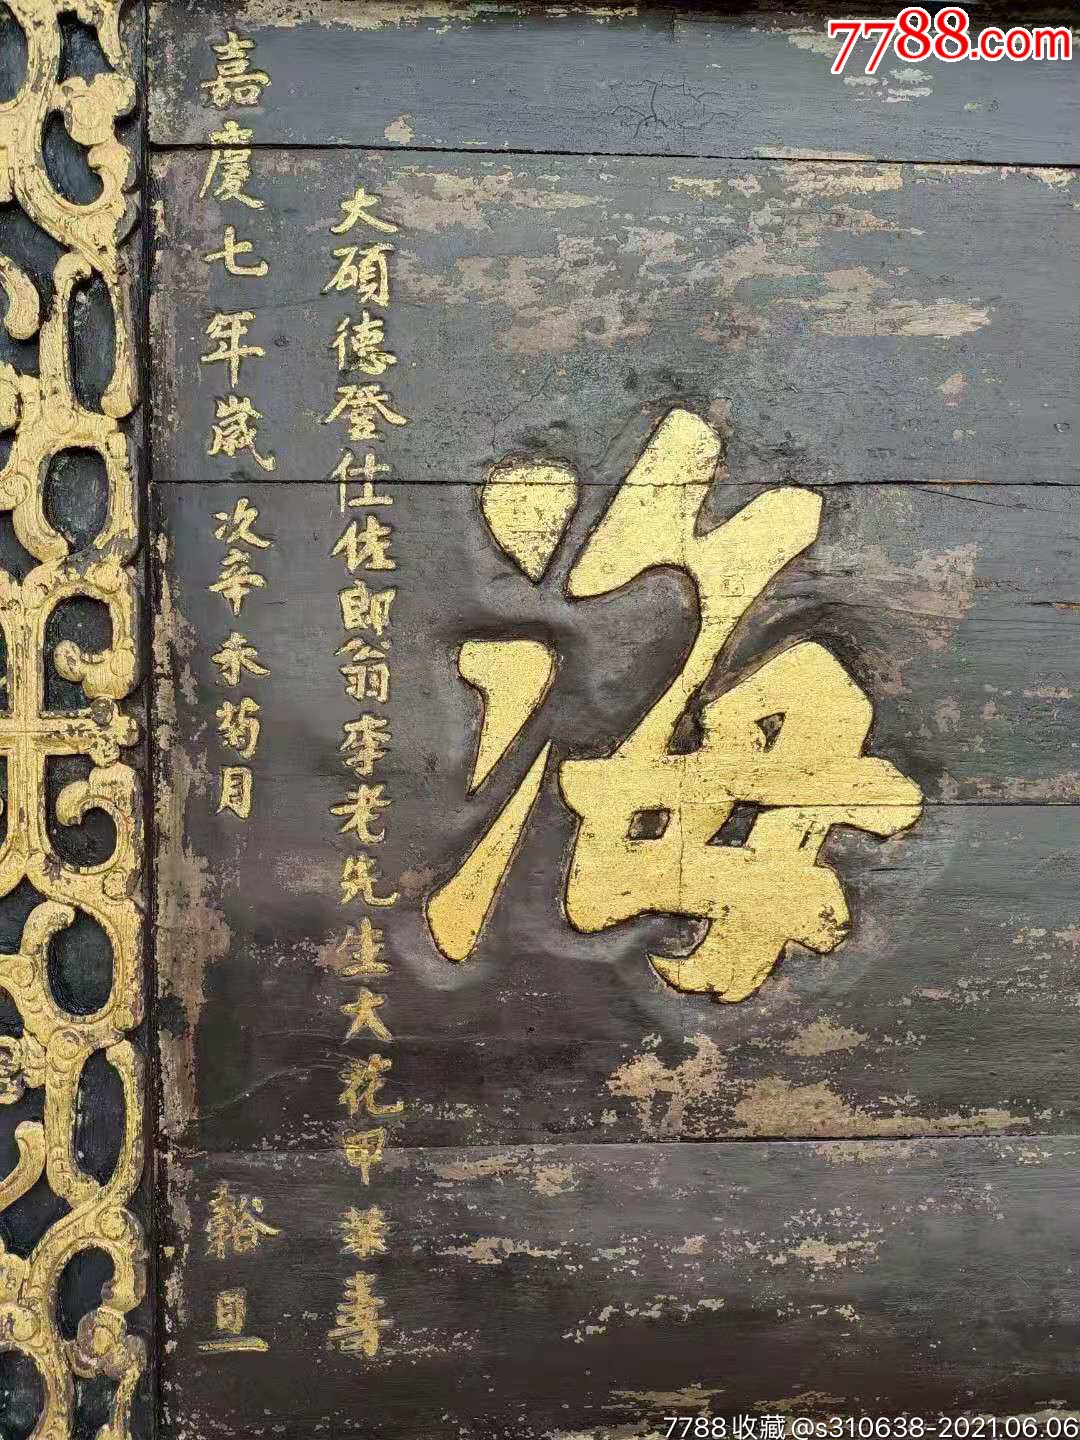 7788.com
海
大碩德登仕佐郎翁李老先生大花甲榮壽
嘉慶七年歲次辛未菊月 穀旦
7788收藏@s310638-2021.06.06